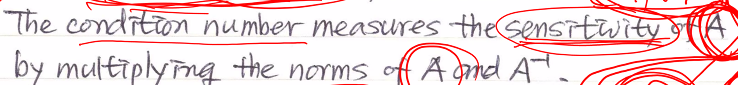 The condition number measures the sensitivity of A
by multiplying the norms of A and A⁻¹.